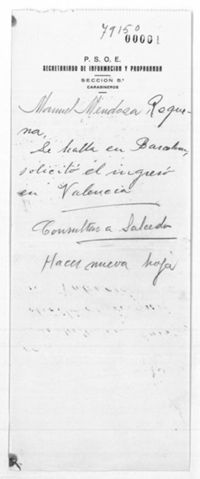 79150
00001
P. S. O. E.
SECRETARIADO DE INFORMACION Y PROPAGANDA
SECCION 5ª
CARABINEROS
Manuel Mendoza Reque-
na,
Se halla en Barcelona,
solicitó el ingreso
en Valencia
Consultar a Salcedo
Hacer nueva hoja